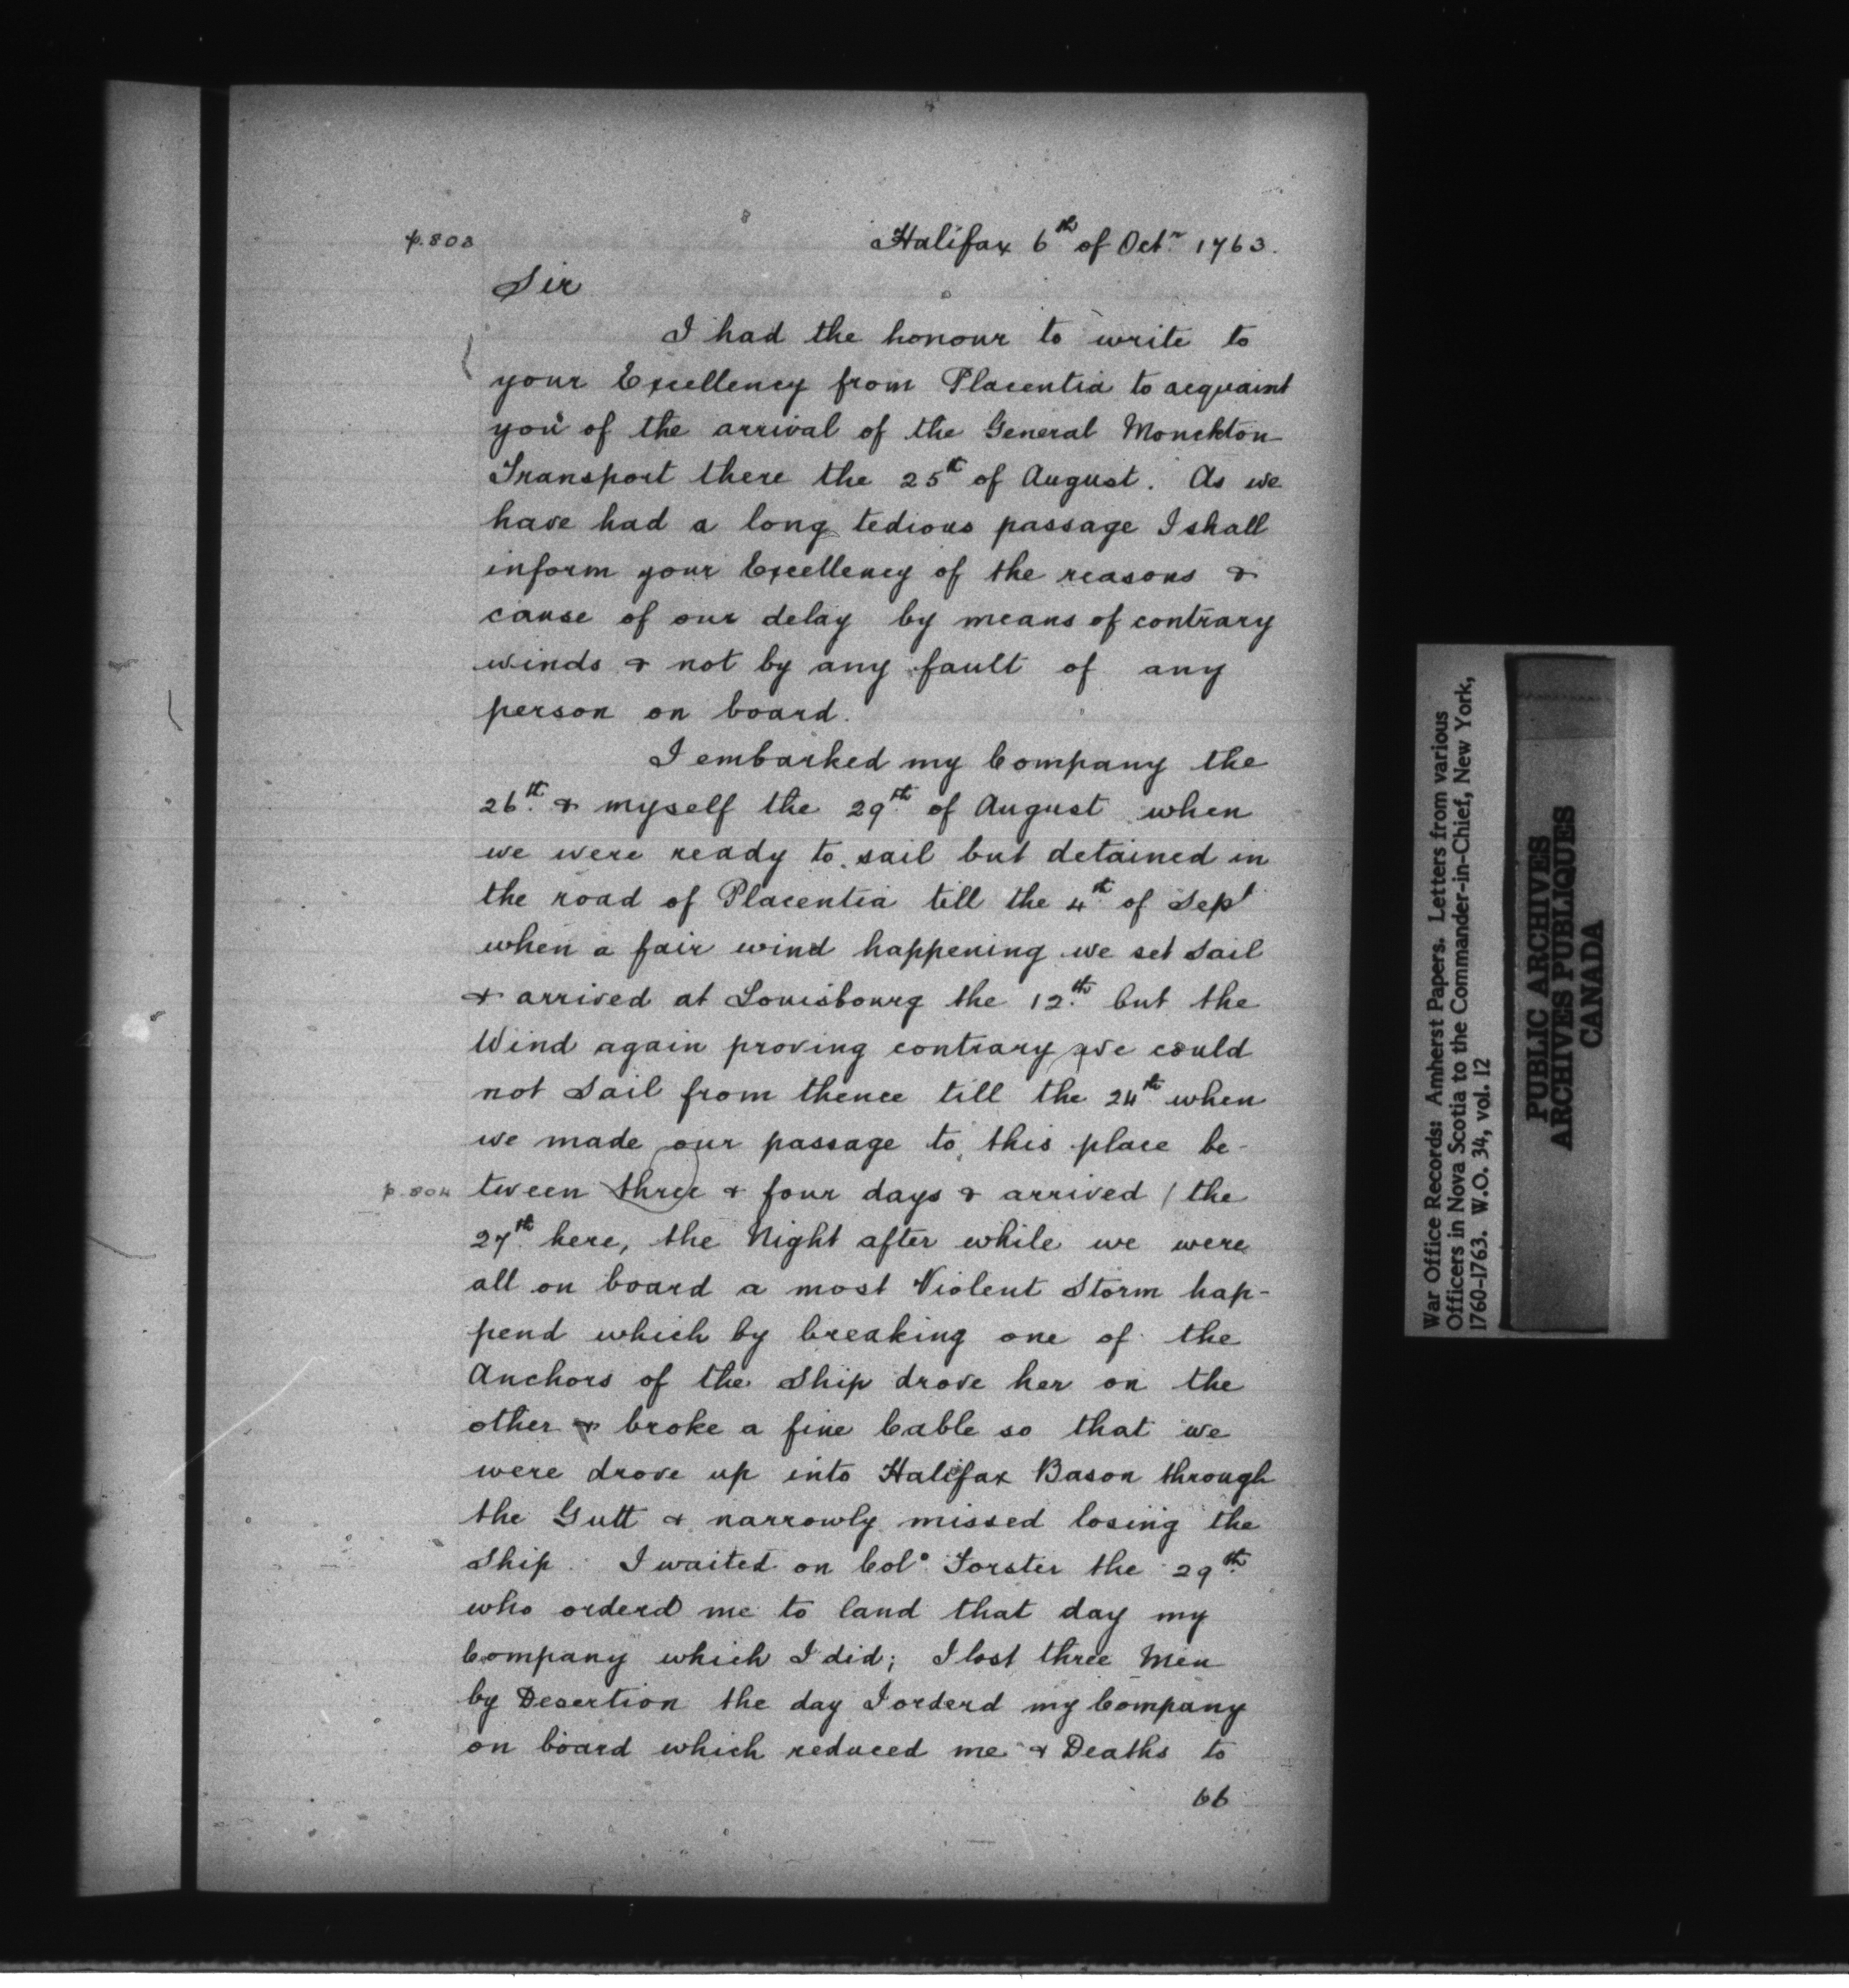 p.803
Halifax 6th of Octr 1763.
Sir
I had the honour to write to
your Excellency from Placentia to acquaint
you of the arrival of the General Monckton
Transport there the 25th of August. As we
have had a long tedious passage I shall
inform your Excellency of the reasons &
cause of our delay by means of contrary
winds & not by any fault of any
person on board.
I embarked my Company the
26th & myself the 29th of August when
we were ready to sail but detained in
the road of Placentia till the 4th of Sept
when a fair wind happening we set Sail
& arrived at Louisbourg the 12th but the
Wind again proving contrary we could
not Sail from thence till the 24th when
we made our passage to this place be-
p.804 tween three & four days & arrived / the
27th here, the Night after while we were
all on board a most Violent Storm hap-
pend which by breaking one of the
Anchors of the Ship drove her on the
other & broke a fine Cable so that we
were drove up into Halifax Bason through
the Gutt & narrowly missed losing the
Ship. I waited on Colo Forster the 29th
who orderd me to land that day my
Company which I did; I lost three Men
by Desertion the day I orderd my Company
on board which reduced me & Deaths to
66
War Office Records: Amherst Papers. Letters from various
Officers in Nova Scotia to the Commander-in-Chief, New York,
1760-1763. W.O. 34, vol. 12
PUBLIC ARCHIVES
ARCHIVES PUBLIQUES
CANADA